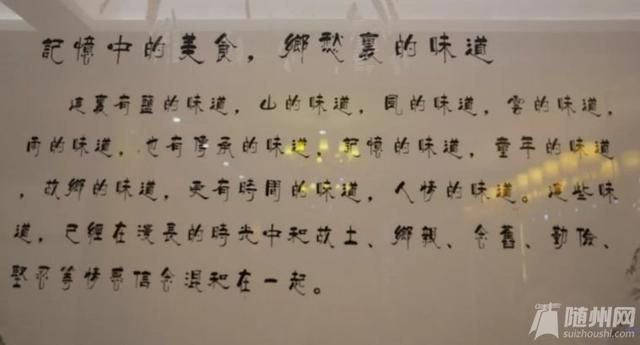 記憶中的美食，鄉愁裏的味道
這裏有鹽的味道，山的味道，風的味道，雲的味道，
雨的味道，也有傳承的味道，記憶的味道，童年的味道
，故鄉的味道，更有時間的味道，人情的味道。這些味
道，已經在漫長的時光中和故土、鄉親、念舊、勤儉、
堅忍等情感信念混和在一起。
随州网
suizhoushi.com